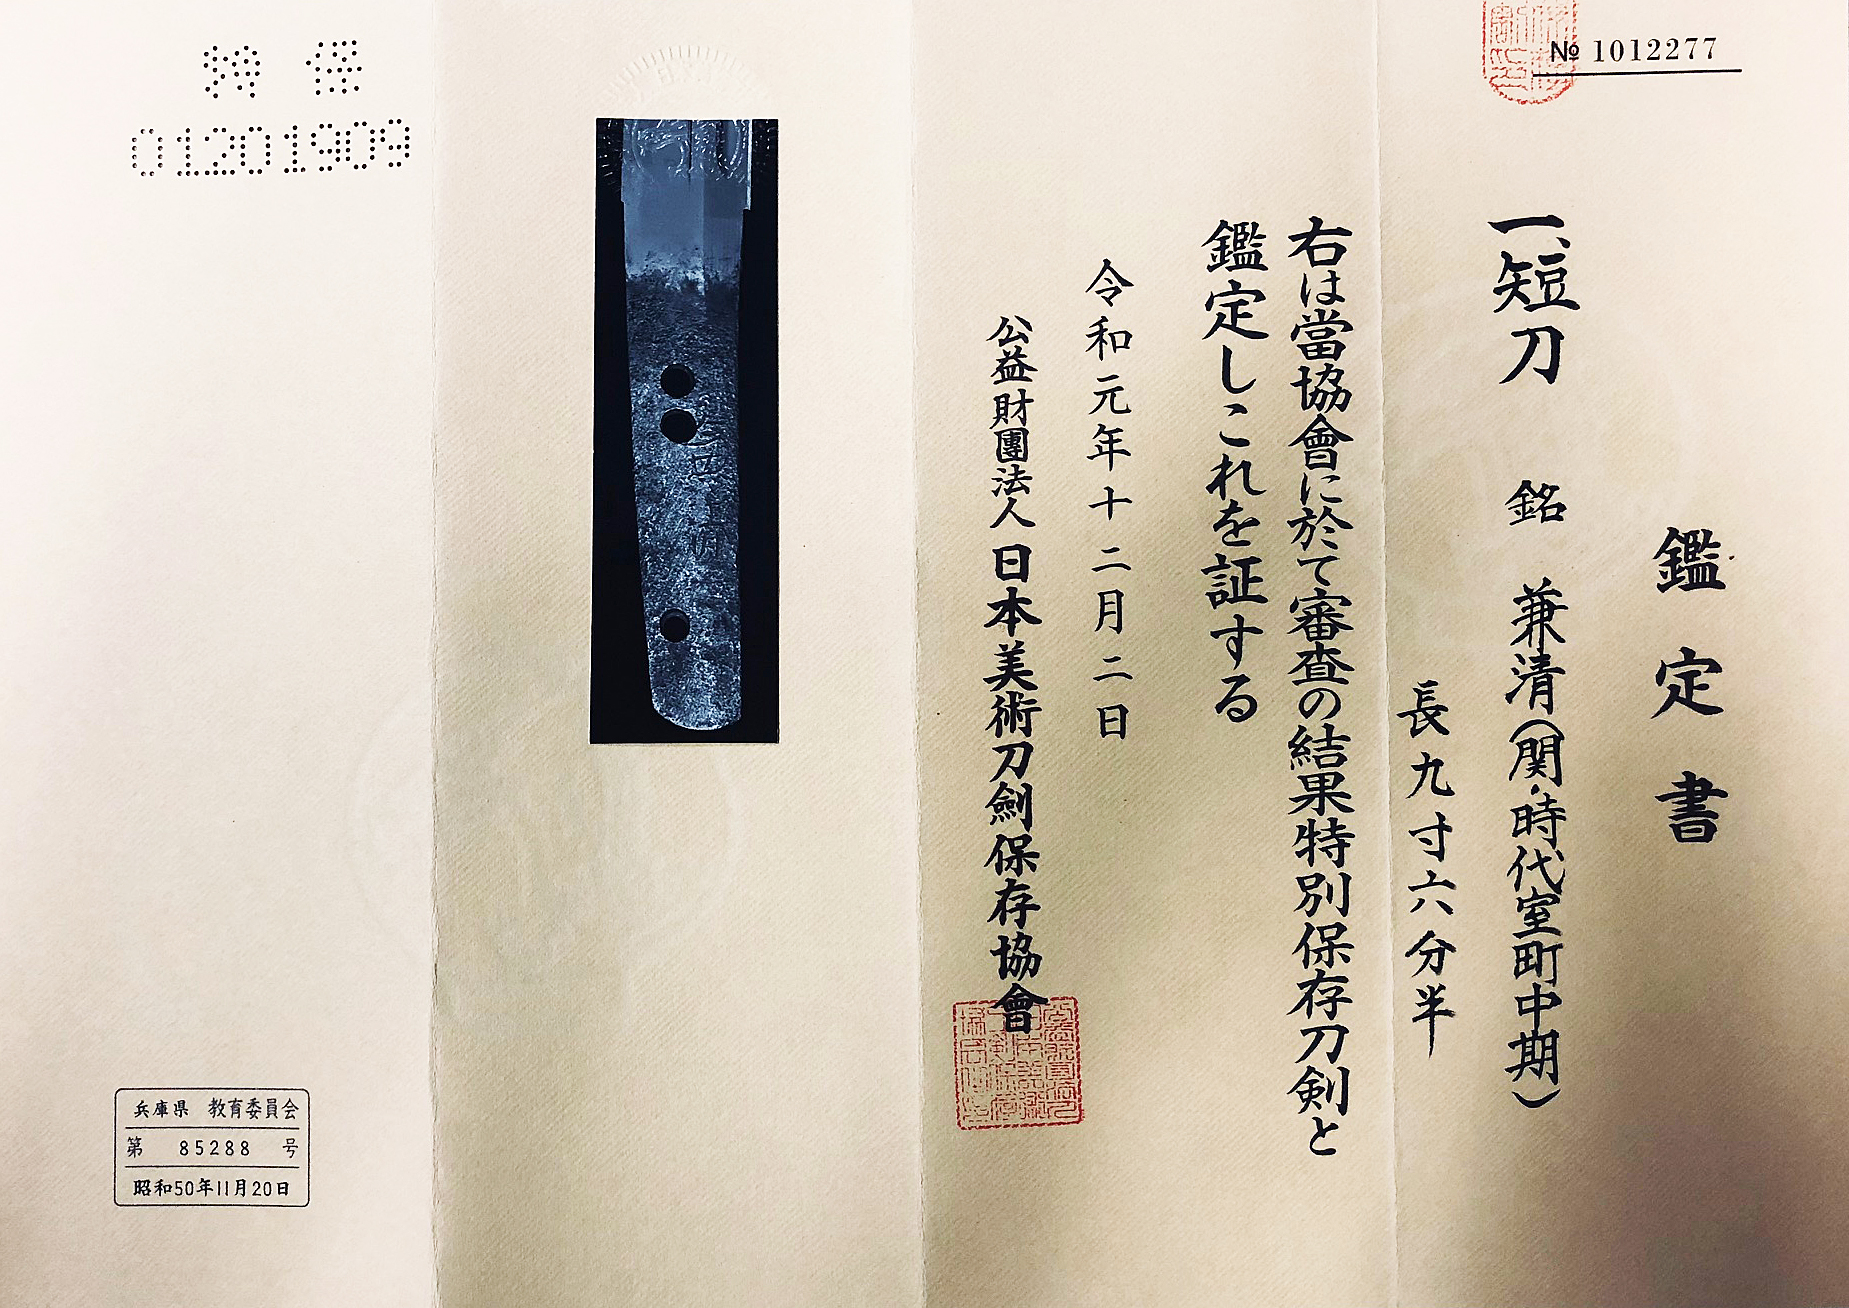 № 1012277
鑑定書
一、短刀 銘 兼清(関・時代室町中期)
長九寸六分半
右は當協會に於て審査の結果特別保存刀剣と
鑑定しこれを証する
令和元年十二月二日
公益財團法人 日本美術刀劍保存協會
特保
01201909
兵庫県 教育委員会
第 85288 号
昭和50年11月20日